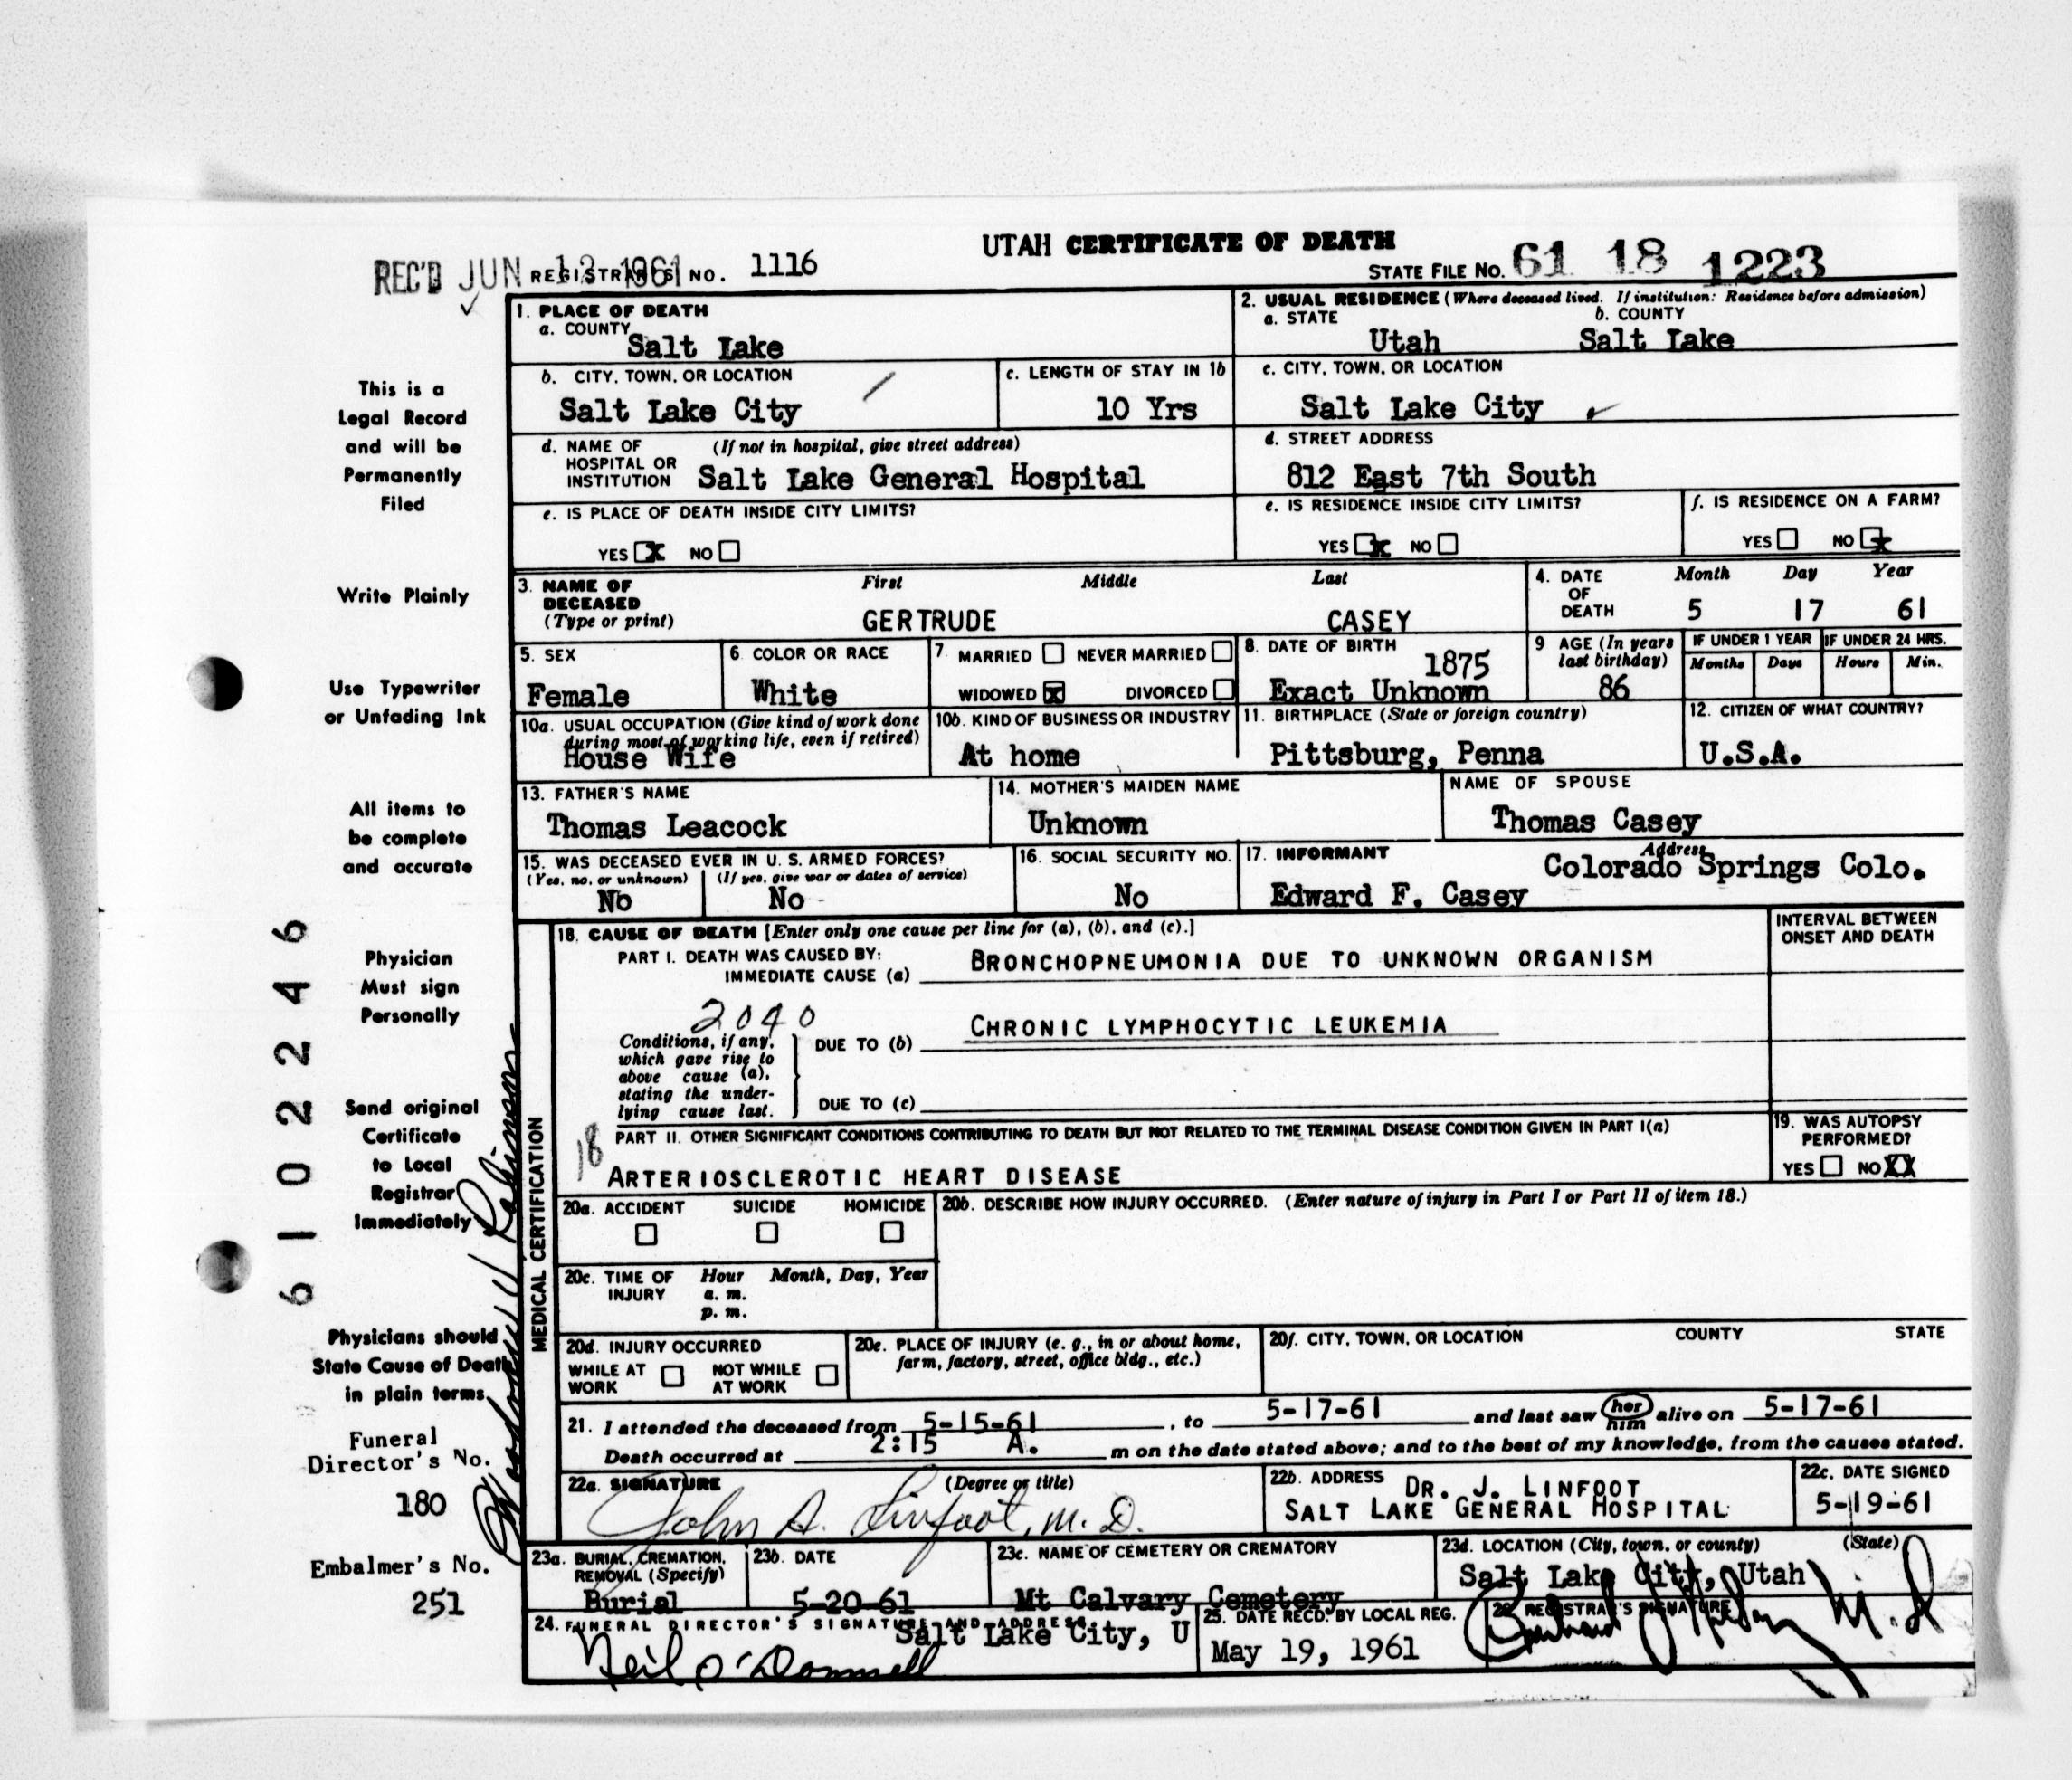 UTAH CERTIFICATE OF DEATH
REC'D JUN 12 1961 REGISTRAR'S NO. 1116
STATE FILE NO. 61 18 1223
This is a
Legal Record
and will be
Permanently
Filed
Write Plainly
Use Typewriter
or Unfading Ink
All items to
be complete
and accurate
Physician
Must sign
Personally
Send original
Certificate
to Local
Registrar
Immediately
Physicians should
State Cause of Death
in plain terms.
Funeral
Director's No.
180
Embalmer's No.
251
6102246
Robinson
1. PLACE OF DEATH
a. COUNTY
Salt Lake
2. USUAL RESIDENCE (Where deceased lived. If institution: Residence before admission)
a. STATE b. COUNTY
Utah Salt Lake
b. CITY, TOWN, OR LOCATION
Salt Lake City
c. LENGTH OF STAY IN 1b
10 Yrs
c. CITY, TOWN, OR LOCATION
Salt Lake City
d. NAME OF HOSPITAL OR INSTITUTION (If not in hospital, give street address)
Salt Lake General Hospital
d. STREET ADDRESS
812 East 7th South
e. IS PLACE OF DEATH INSIDE CITY LIMITS?
YES x NO
e. IS RESIDENCE INSIDE CITY LIMITS?
YES x NO
f. IS RESIDENCE ON A FARM?
YES NO x
3. NAME OF DECEASED (Type or print)
First Middle Last
GERTRUDE CASEY
4. DATE OF DEATH
Month Day Year
5 17 61
5. SEX
Female
6. COLOR OR RACE
White
7. MARRIED NEVER MARRIED
WIDOWED x DIVORCED
8. DATE OF BIRTH
1875
Exact Unknown
9 AGE (In years last birthday)
86
IF UNDER 1 YEAR
Months Days
IF UNDER 24 HRS.
Hours Min.
10a. USUAL OCCUPATION (Give kind of work done during most of working life, even if retired)
House Wife
10b. KIND OF BUSINESS OR INDUSTRY
At home
11. BIRTHPLACE (State or foreign country)
Pittsburg, Penna
12. CITIZEN OF WHAT COUNTRY?
U.S.A.
13. FATHER'S NAME
Thomas Leacock
14. MOTHER'S MAIDEN NAME
Unknown
NAME OF SPOUSE
Thomas Casey
15. WAS DECEASED EVER IN U. S. ARMED FORCES?
(Yes, no, or unknown) (If yes, give war or dates of service)
No No
16. SOCIAL SECURITY NO.
No
17. INFORMANT Address
Colorado Springs Colo.
Edward F. Casey
MEDICAL CERTIFICATION
18. CAUSE OF DEATH [Enter only one cause per line for (a), (b), and (c).]
INTERVAL BETWEEN ONSET AND DEATH
PART I. DEATH WAS CAUSED BY:
IMMEDIATE CAUSE (a) BRONCHOPNEUMONIA DUE TO UNKNOWN ORGANISM
2040
Conditions, if any, which gave rise to above cause (a), stating the underlying cause last.
DUE TO (b) CHRONIC LYMPHOCYTIC LEUKEMIA
DUE TO (c)
18
PART II. OTHER SIGNIFICANT CONDITIONS CONTRIBUTING TO DEATH BUT NOT RELATED TO THE TERMINAL DISEASE CONDITION GIVEN IN PART I(a)
ARTERIOSCLEROTIC HEART DISEASE
19. WAS AUTOPSY PERFORMED?
YES NO XX
20a. ACCIDENT SUICIDE HOMICIDE
20b. DESCRIBE HOW INJURY OCCURRED. (Enter nature of injury in Part I or Part II of item 18.)
20c. TIME OF INJURY Hour Month, Day, Year
a. m.
p. m.
20d. INJURY OCCURRED
WHILE AT WORK NOT WHILE AT WORK
20e. PLACE OF INJURY (e. g., in or about home, farm, factory, street, office bldg., etc.)
20f. CITY, TOWN, OR LOCATION COUNTY STATE
21. I attended the deceased from 5-15-61, to 5-17-61 and last saw her him alive on 5-17-61
Death occurred at 2:15 A. m on the date stated above; and to the best of my knowledge, from the causes stated.
22a. SIGNATURE (Degree or title)
John A. Linfoot, M. D.
22b. ADDRESS DR. J. LINFOOT
SALT LAKE GENERAL HOSPITAL
22c. DATE SIGNED
5-19-61
23a. BURIAL, CREMATION, REMOVAL (Specify)
Burial
23b. DATE
5-20-61
23c. NAME OF CEMETERY OR CREMATORY
Mt Calvary Cemetery
23d. LOCATION (City, town, or county) (State)
Salt Lake City, Utah
24. FUNERAL DIRECTOR'S SIGNATURE AND ADDRESS
Salt Lake City, U
Neil O'Donnell
25. DATE RECD. BY LOCAL REG.
May 19, 1961
26. REGISTRAR'S SIGNATURE
M. D